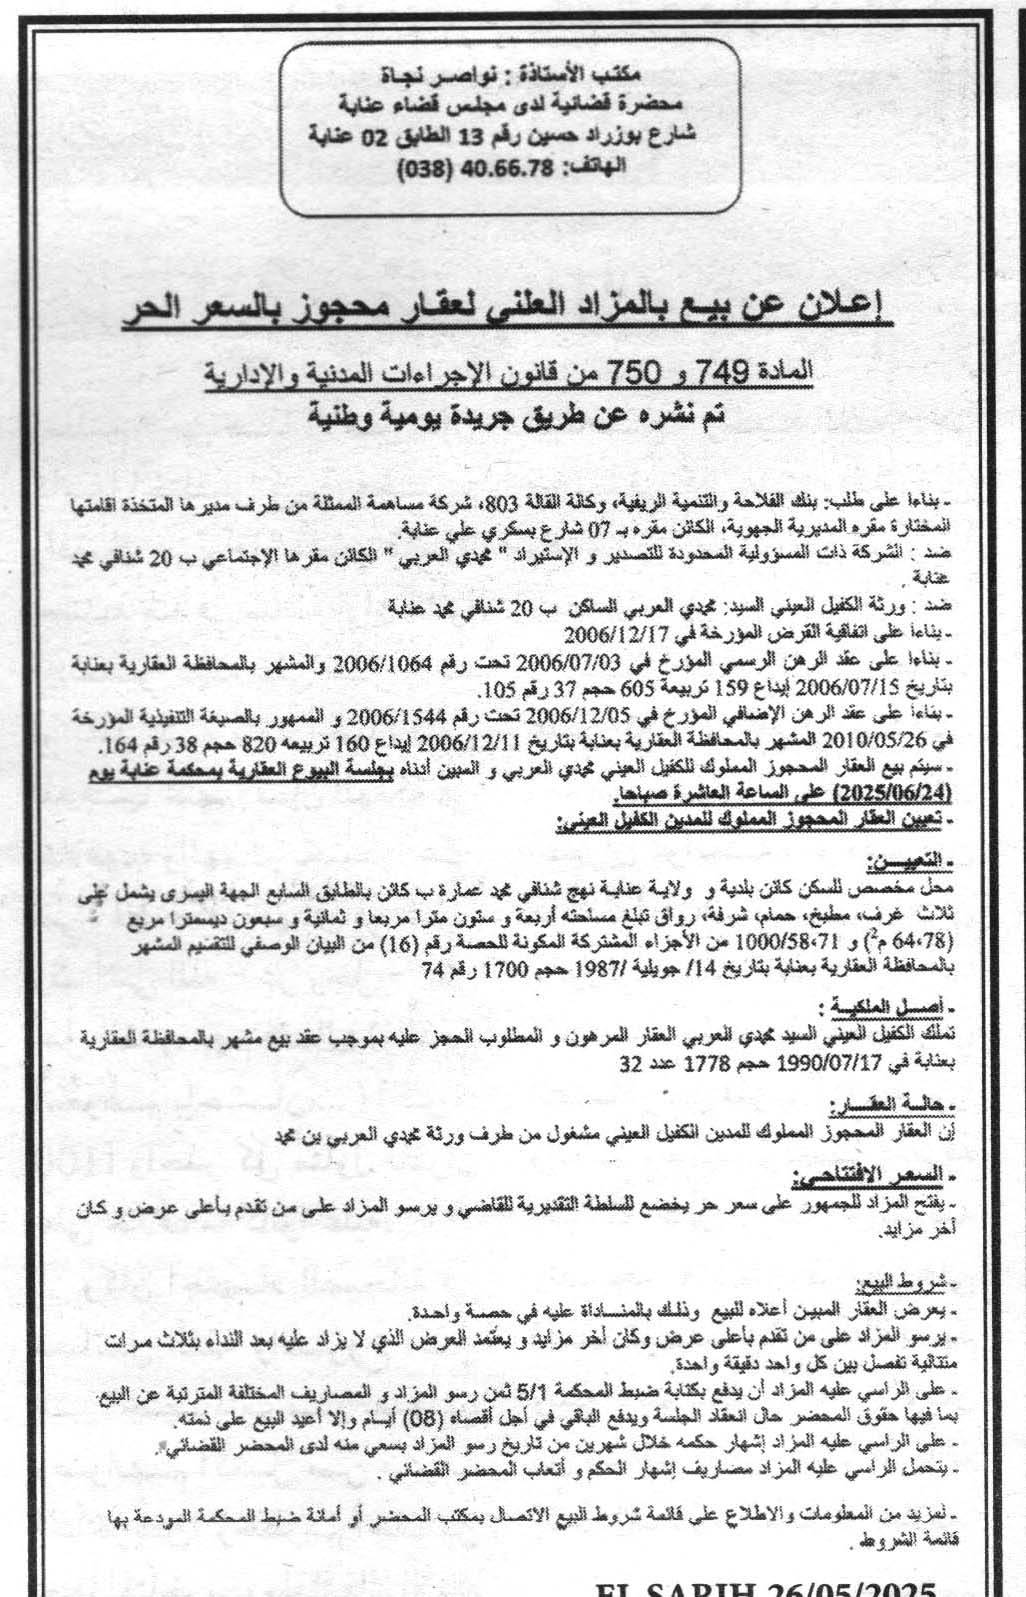 مكتب الأستاذة : نواصر نجاة
محضرة قضائية لدى مجلس قضاء عنابة
شارع بوزراد حسين رقم 13 الطابق 02 عنابة
الهاتف: 40.66.78 (038)
إعلان عن بيع بالمزاد العلني لعقار محجوز بالسعر الحر
المادة 749 و 750 من قانون الإجراءات المدنية والإدارية
تم نشره عن طريق جريدة يومية وطنية
- بناءا على طلب: بنك الفلاحة والتنمية الريفية، وكالة القالة 803، شركة مساهمة الممثلة من طرف مديرها المتخذة اقامتها
المختارة مقره المديرية الجهوية، الكائن مقره بـ 07 شارع بسكري علي عنابة.
ضد : الشركة ذات المسؤولية المحدودة للتصدير و الإستيراد " محمدي العربي " الكائن مقرها الإجتماعي ب 20 شنافي محمد
عنابة .
ضد : ورثة الكفيل العيني السيد: محمدي العربي الساكن ب 20 شنافي محمد عنابة
- بناءا على اتفاقية القرض المؤرخة في 2006/12/17
- بناءا على عقد الرهن الرسمي المؤرخ في 2006/07/03 تحت رقم 2006/1064 والمشهر بالمحافظة العقارية بعنابة
بتاريخ 2006/07/15 إيداع 159 تربيعة 605 حجم 37 رقم 105.
- بناءا على عقد الرهن الإضافي المؤرخ في 2006/12/05 تحت رقم 2006/1544 و الممهور بالصيغة التنفيذية المؤرخة
في 2010/05/26 المشهر بالمحافظة العقارية بعنابة بتاريخ 2006/12/11 إيداع 160 تربيعه 820 حجم 38 رقم 164.
- سيتم بيع العقار المحجوز المملوك للكفيل العيني محمدي العربي و المبين أدناه بجلسة البيوع العقارية بمحكمة عنابة يوم
(2025/06/24) على الساعة العاشرة صباحا.
- تعيين العقار المحجوز المملوك للمدين الكفيل العيني:
- التعييـــن:
محل مخصص للسكن كائن بلدية و ولاية عنابة نهج شنافي محمد عمارة ب كائن بالطابق السابع الجهة اليسرى يشمل على
ثلاث غرف، مطبخ، حمام، شرفة، رواق تبلغ مساحته أربعة و ستون مترا مربعا و ثمانية و سبعون ديسمترا مربع
(64،78 م2) و 1000/58،71 من الأجزاء المشتركة المكونة للحصة رقم (16) من البيان الوصفي للتقسيم المشهر
بالمحافظة العقارية بعنابة بتاريخ 14/ جويلية /1987 حجم 1700 رقم 74
- أصـــل الملكيـــة :
تملك الكفيل العيني السيد محمدي العربي العقار المرهون و المطلوب الحجز عليه بموجب عقد بيع مشهر بالمحافظة العقارية
بعنابة في 1990/07/17 حجم 1778 عدد 32
- حالـــة العقـــــار:
إن العقار المحجوز المملوك للمدين الكفيل العيني مشغول من طرف ورثة محمدي العربي بن محمد
- السعـر الإفتتاحـي:
- يفتح المزاد للجمهور على سعر حر يخضع للسلطة التقديرية للقاضي و يرسو المزاد على من تقدم بأعلى عرض و كان
أخر مزايد.
- شروط البيع:
- يعرض العقار المبين أعلاه للبيع وذلك بالمنـــاداة عليه في حصة واحدة.
- يرسو المزاد على من تقدم بأعلى عرض وكان أخر مزايد و يعتمد العرض الذي لا يزاد عليه بعد النداء بثلاث مرات
متتالية تفصل بين كل واحد دقيقة واحدة.
- على الراسي عليه المزاد أن يدفع بكتابة ضبط المحكمة 5/1 ثمن رسو المزاد و المصاريف المختلفة المترتبة عن البيع
بما فيها حقوق المحضر حال انعقاد الجلسة ويدفع الباقي في أجل أقصاه (08) أيـــام وإلا أعيد البيع على ذمته.
- على الراسي عليه المزاد إشهار حكمه خلال شهرين من تاريخ رسو المزاد بسعي منه لدى المحضر القضائي.
- يتحمل الراسي عليه المزاد مصاريف إشهار الحكم و أتعاب المحضر القضائي .
- لمزيد من المعلومات والاطلاع على قائمة شروط البيع الاتصال بمكتب المحضر أو أمانة ضبط المحكمة المودعة بها
قائمة الشروط .
EL SARIH 26/05/2025